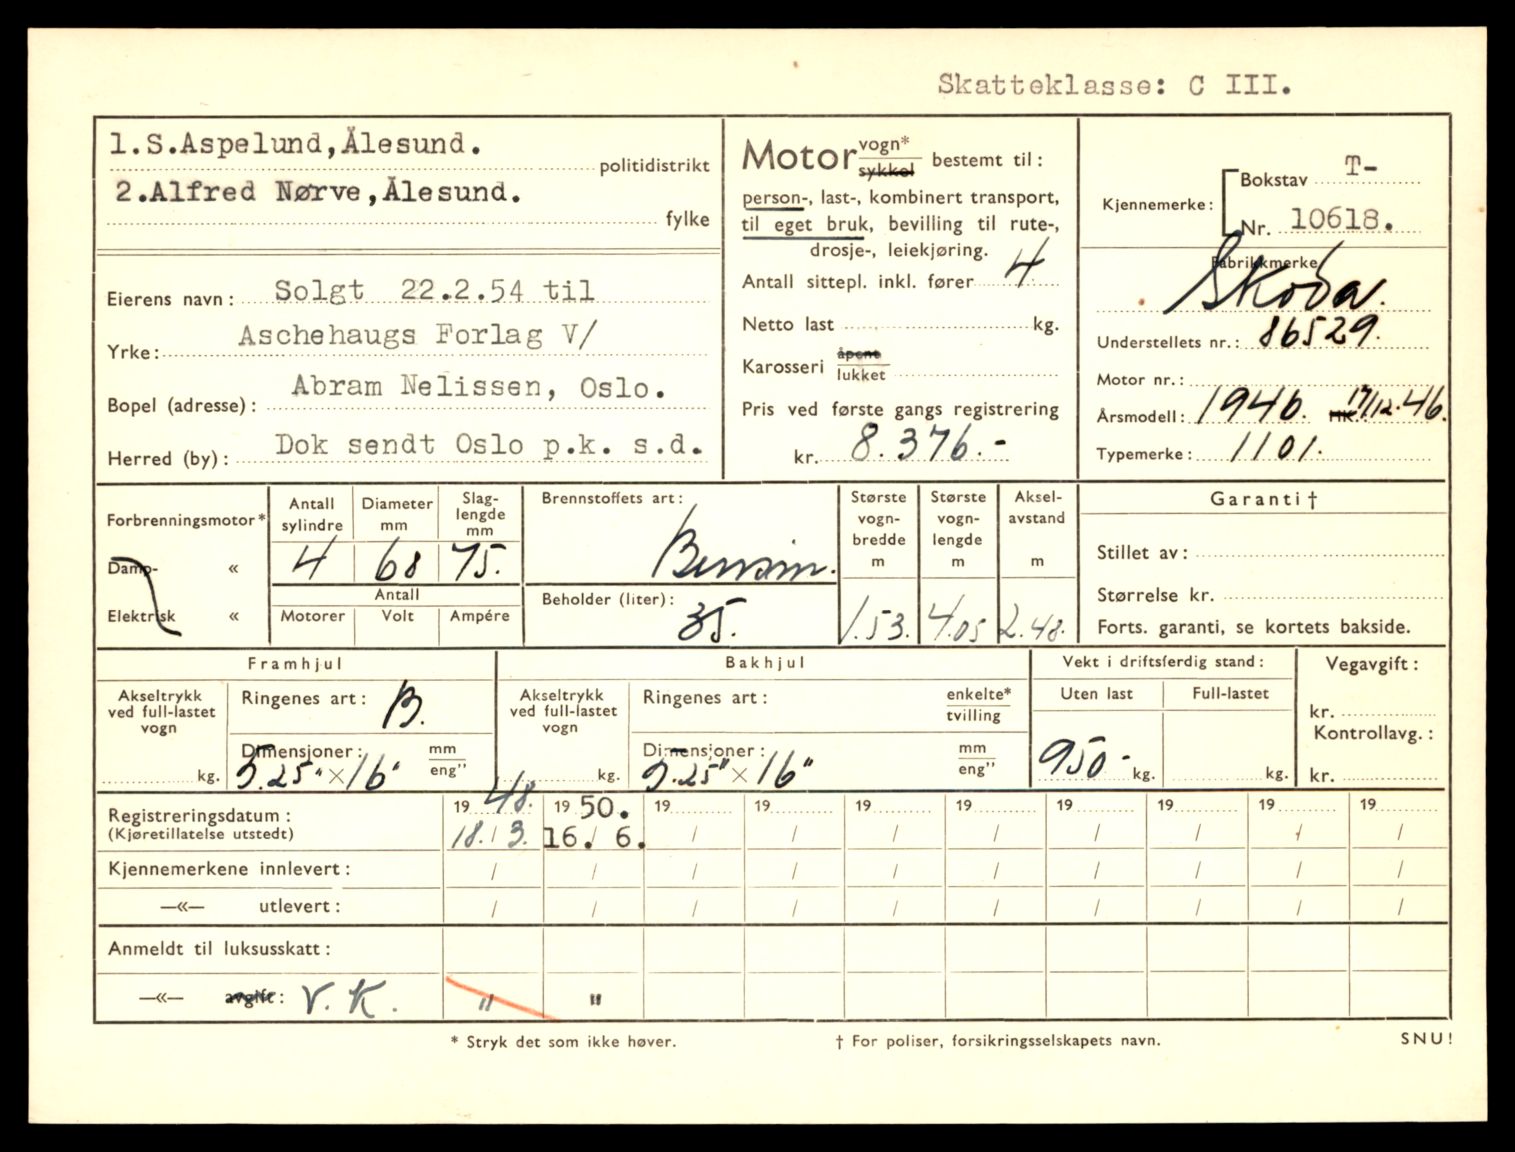 Skatteklasse: C III.
1.S.Aspelund,Ålesund.
politidistrikt
2.Alfred Nørve,Ålesund.
fylke
Eierens navn: Solgt 22.2.54 til
Yrke: Aschehaugs Forlag V/
Bopel (adresse): Abram Nelissen, Oslo.
Herred (by): Dok sendt Oslo p.k. s.d.
Motor vogn* sykkel bestemt til:
person-, last-, kombinert transport,
til eget bruk, bevilling til rute-,
drosje-, leiekjøring.
Antall sittepl. inkl. fører 4
Netto last kg.
Karosseri åpent lukket
Pris ved første gangs registrering
kr. 8.376.-
Kjennemerke: Bokstav T-
Nr. 10618.
Fabrikkmerke
Skoda.
Understellets nr.: 86529.
Motor nr.:
Årsmodell: 1946. HK.: 17/12.46.
Typemerke: 1101.
Forbrenningsmotor*
Damp- «
Elektrisk «
Antall sylindre
Diameter mm
Slag-lengde mm
4 68 75.
Antall
Motorer Volt Ampére
Brennstoffets art:
Bensin.
Beholder (liter):
35.
Største vogn-bredde m
Største vogn-lengde m
Aksel-avstand m
1.53. 4.05 2.48.
Garanti †
Stillet av:
Størrelse kr.
Forts. garanti, se kortets bakside.
Framhjul
Akseltrykk ved full-lastet vogn
kg.
Ringenes art: B.
Dimensjoner: mm eng"
5.25" × 16"
Bakhjul
Akseltrykk ved full-lastet vogn
kg.
Ringenes art: enkelte* tvilling
Dimensjoner: mm eng"
5.25" × 16"
Vekt i driftsferdig stand:
Uten last Full-lastet
950.- kg. kg.
Vegavgift:
kr.
Kontrollavg.:
kr.
Registreringsdatum:
(Kjøretillatelse utstedt)
19 48. 19 50. 19 19 19 19 19 19 19 19
18./3. 16./6. / / / / / / / /
Kjennemerkene innlevert: / / / / / / / / / /
—«— utlevert: / / / / / / / / / /
Anmeldt til luksusskatt:
—«— avgift: V. K. " "
* Stryk det som ikke høver.
† For poliser, forsikringsselskapets navn.
SNU!